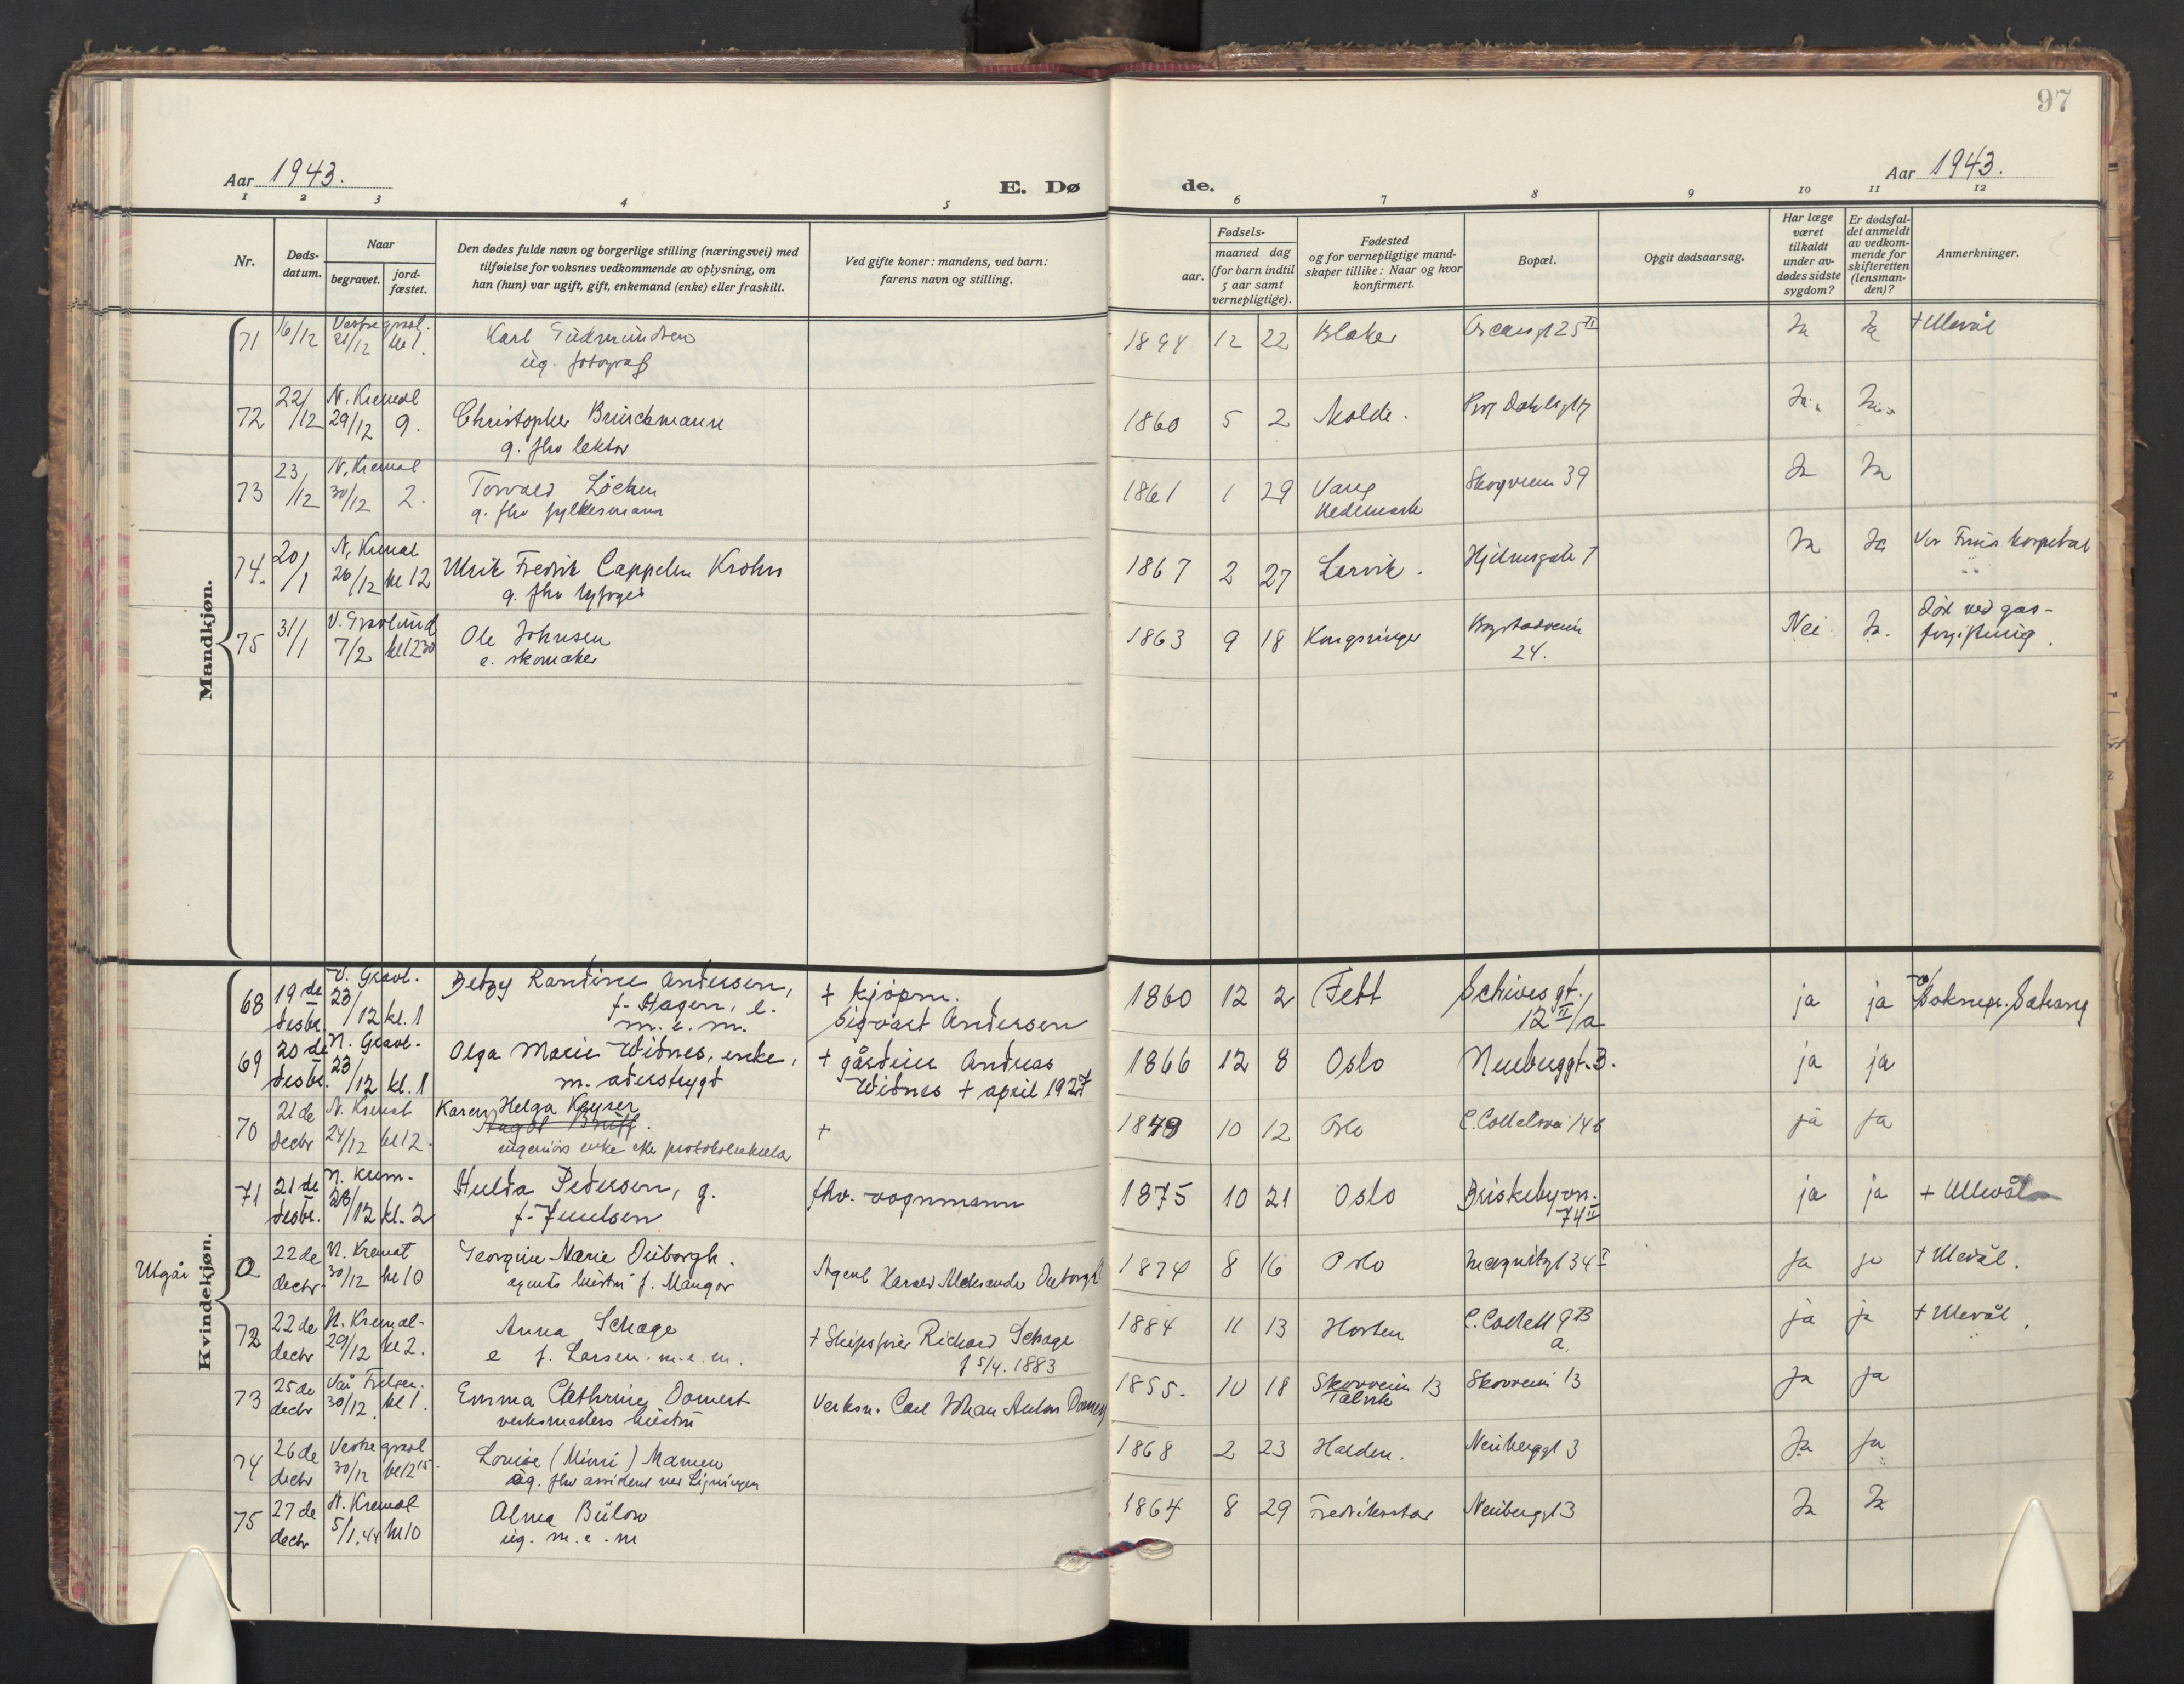 97
Aar 1943.
E. Dø de.
Aar 1943.
1 2 3 4 5 6 7 8 9 10 11 12
Nr.
Døds-
datum.
Naar
begravet.
jord-
fæstet.
Den dødes fulde navn og borgerlige stilling (næringsvei) med
tilføielse for voksnes vedkommende av oplysning, om
han (hun) var ugift, gift, enkemand (enke) eller fraskilt.
Ved gifte koner: mandens, ved barn:
farens navn og stilling.
Fødsels-
aar.
maaned dag
(for barn indtil
5 aar samt
vernepligtige).
Fødested
og for vernepligtige mand-
skaper tillike: Naar og hvor
konfirmert.
Bopæl.
Opgit dødsaarsag.
Har læge
været
tilkaldt
under av-
dødes sidste
sygdom?
Er dødsfal-
det anmeldt
av vedkom-
mende for
skifteretten
(lensman-
den)?
Anmerkninger.
Mandkjøn.
71 16/12 Vestre gravl. 21/12 kl 1. Karl Gudmundsen 1894 12 22 Blaker Oscarsgt 25 II Ja Ja + Ullevål
ug. fotograf
72 22/12 N. Kremat 29/12 9. Christopher Brinchmann 1860 5 2 Molde. Prof Dahlsgt 17 Ja. Ja.
g. fhv lektor
73 23/12 N. Kremat 30/12 2. Torvald Løchen 1861 1 29 Vang Skogveien 39 Ja Ja
g. fhv fylkesmann Hedemark
74. 20/1 N. Kremat 26/12 kl 12 Ulrik Fredrik Cappelen Krohn 1867 2 27 Larvik. 7 Ja Ja Vor Frues hospital
g. fhv byfoged
75 31/1 V. Gravlund 7/2 kl 12 30 Ole Johnsen 1863 9 18 Kongsvinger 24. Nei Ja. død ved gas-
e. skomaker forgiftning.
Kvindekjøn.
68 19 de desbr. V. Gravl. 23/12 kl. 1 Betzy Randine Andersen, + kjøpm. 1860 12 2 Fett Schives gt. ja ja
f. Hagen, e. Sigvart Andersen 12 II/a
m. e. m.
69 20 de desbr. N. Gravl. 23/12 kl. 1 Olga Marie Widnes, enke, + gårdeier Andreas 1866 12 8 Oslo Neuberggt. 3. ja ja
m. alderstrygd Widnes + april 1927
70 21 de decbr N. Kremat 24/12 kl 12. Karen Helga Keyser + 1879 10 12 Oslo C. Collettsvei 14 b ja ja
ingeniørs enke
71 21 de desbr. N. Krem. 28/12 kl. 2 Hulda Pedersen, g. fhv. vognmann 1875 10 21 Oslo Briskebyvn. ja ja + Ullevål
f. Juulsen 74 II
Utgår 0 22 de decbr N. Kremat 30/12 kl 10 Georgine Marie Dieborgh. Agent Harald Aleksander Dieborgh 1874 8 16 Oslo 34 I Ja ja + Ullevål.
agents hustru f. Mangor
72 22 de decbr N. Kremat. 29/12 kl 2. Anna Schage + Skipsfører Richard Schage 1884 11 13 Horten C. Collett 9 B ja ja + Ullevål.
e f. Larsen. m. e. m. f 5/4. 1883 a.
73 25 de decbr Vår Frelser. 30/12. kl 1. Emma Cathrine Domert Verksm. Carl Johan Anton 1855. 10 18 Skovveien 13 Skovveien 13 Ja Ja
verksmesters hustru Talvik
74 26 de decbr Vestre gravl 30/12 kl 12 15. Louise (Mimi) Mamen 1868 2 23 Halden. Neuberggt 3 Ja Ja
ug. fhv assistent ved Ligningen
75 27 de decbr N. Kremat 5/1. 44 kl 10 Alma Bülow 1864 8 29 Fredrikstad Neuberggt 3 Ja Ja
ug. m. e. m